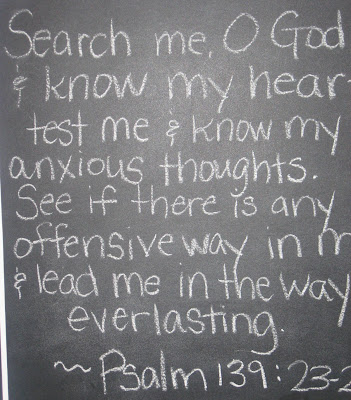 Search me, O God
& know my hear
test me & know my
anxious thoughts.
See if there is any
offensive way in m
& lead me in the way
everlasting.
~ Psalm 139:23-2